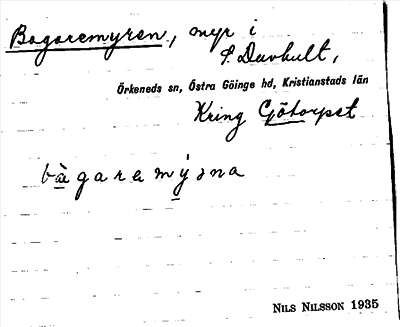 Bagaremyren, myr i
S. Duvhult,
Örkeneds sn, Östra Göinge hd, Kristianstads län
Kring Götorpet
NILS NILSSON 1935